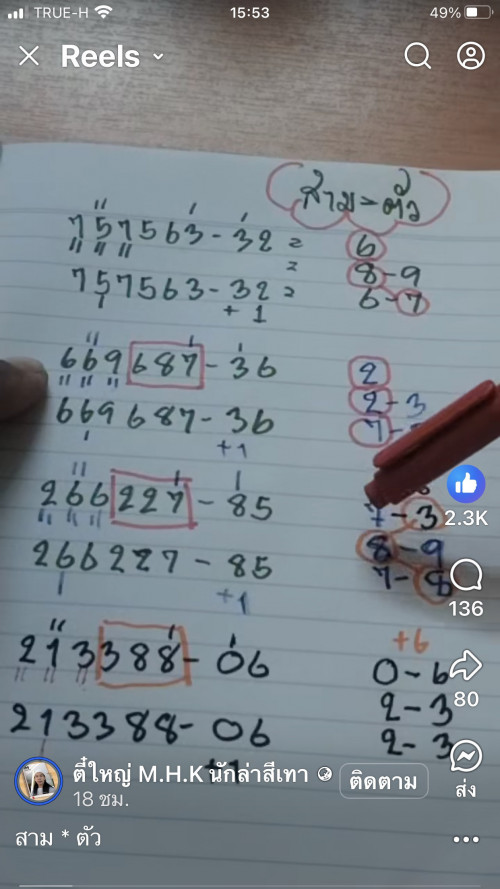 TRUE-H 15:53 49%
Reels
สาม=ตัว
757563-32 = 6
= 8-9
757563-32 = 6-7
+1
669687-36 2
2-3
669687-36 7-
+1
266227-85
7-3
8-9
266227-85 7-8
+1
+6
213388-06 0-6
2-3
213388-06 2-3
+1
2.3K
136
80
ส่ง
ตี๋ใหญ่ M.H.K นักล่าสีเทา
ติดตาม
18 ชม.
สาม * ตัว